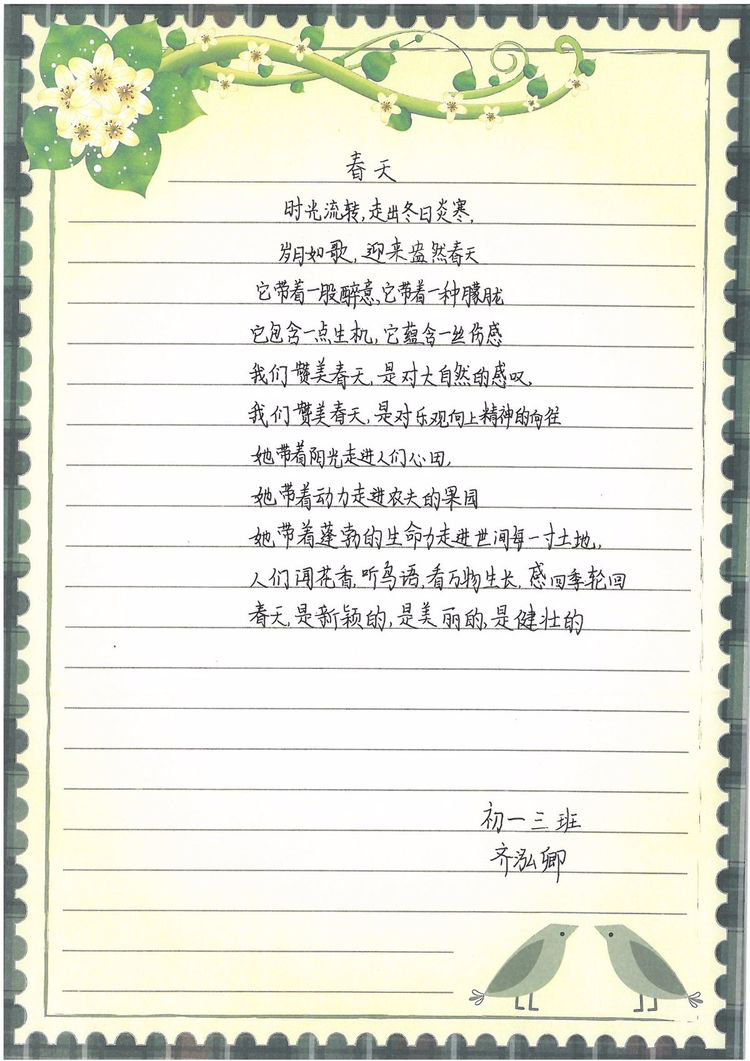 春天
时光流转,走出冬日炎寒,
岁月如歌,迎来盎然春天
它带着一股醉意,它带着一种朦胧
它包含一点生机,它蕴含一丝伤感
我们赞美春天,是对大自然的感叹,
我们赞美春天,是对乐观向上精神的向往
她带着阳光走进人们心田,
她带着动力走进农夫的果园
她带着蓬勃的生命力走进世间每一寸土地,
人们闻花香,听鸟语,看万物生长,感四季轮回
春天,是新颖的,是美丽的,是健壮的
初一三班
齐泓卿